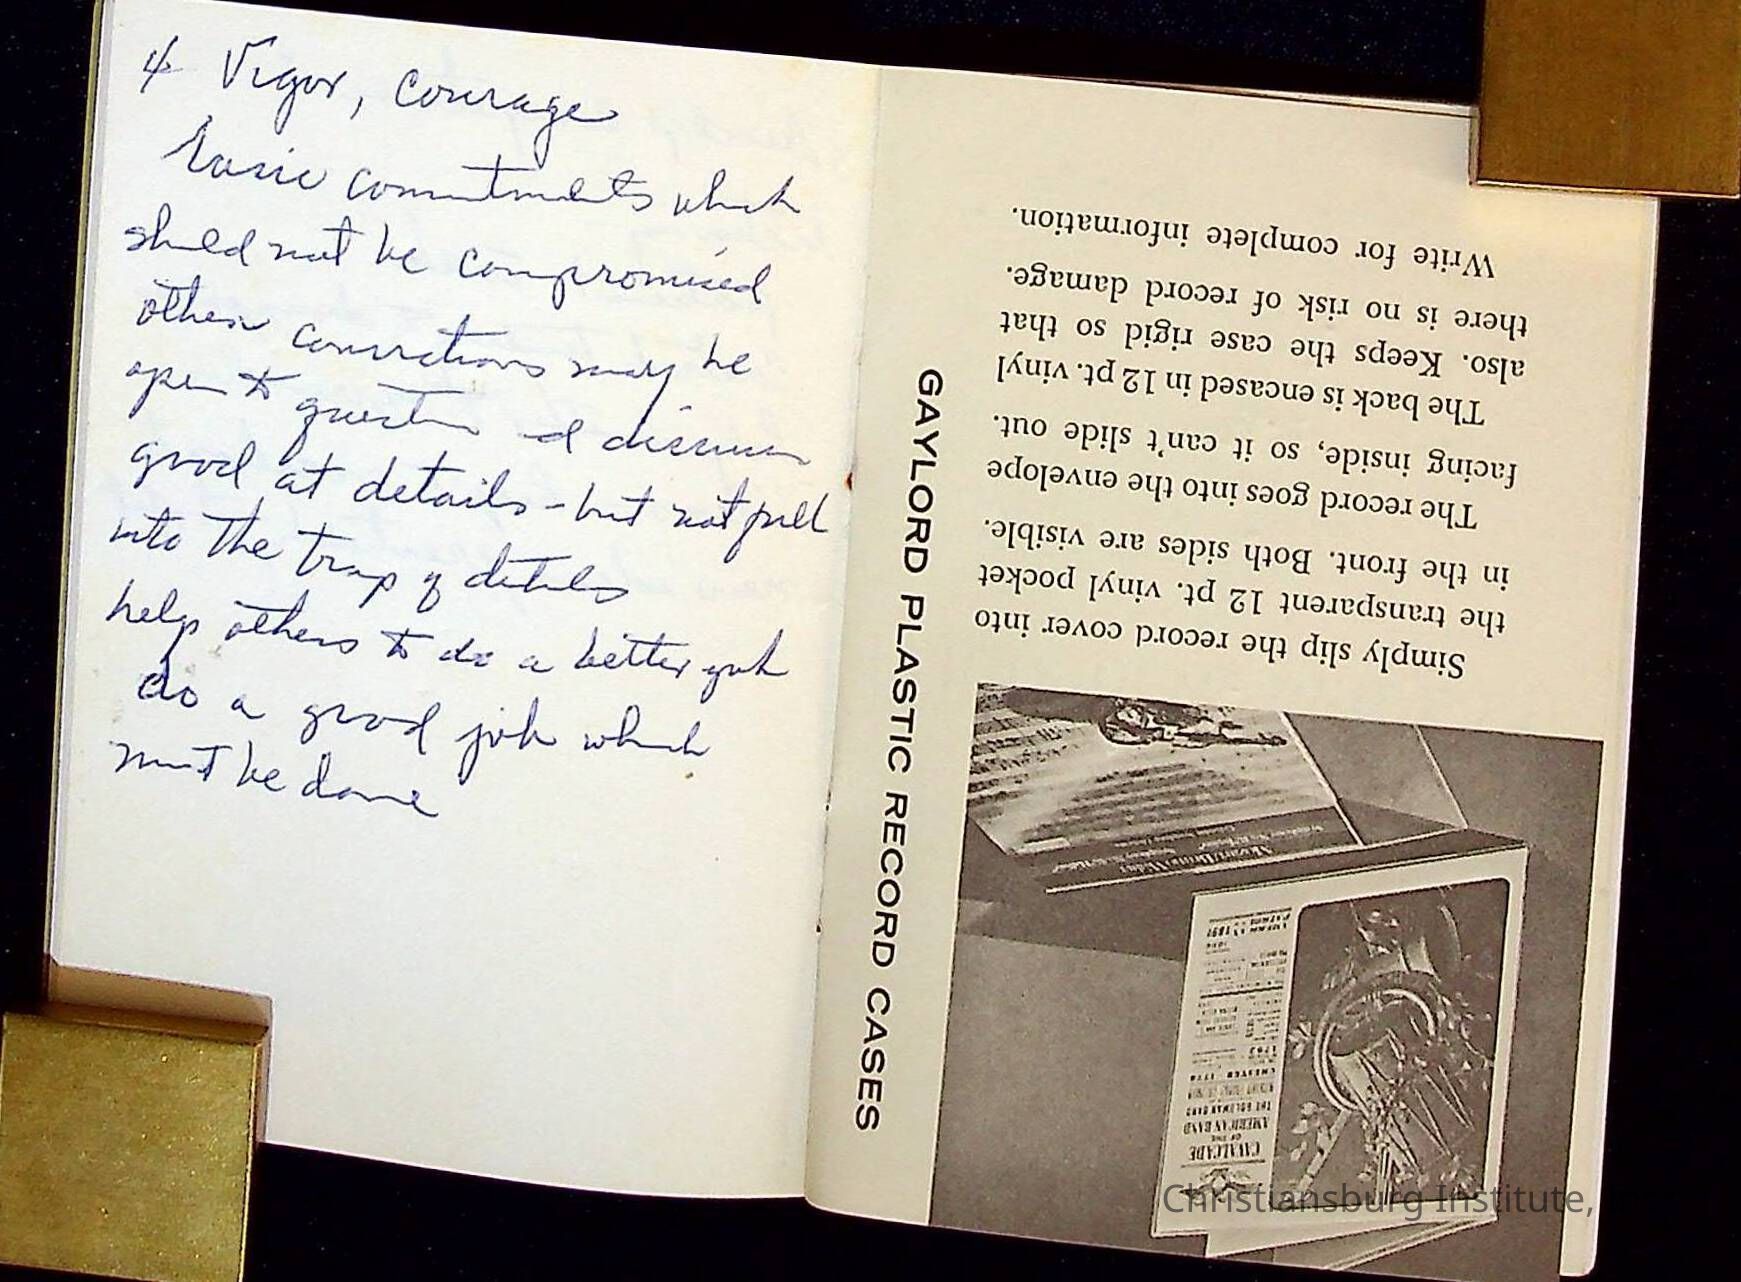 4 Vigor, Courage
basic commitments which
should not be compromised
other convictions may be
open to question and discussion
good at details - but not pull
into the trap of details
help others to do a better job
do a good job which
must be done
GAYLORD PLASTIC RECORD CASES
Simply slip the record cover into
the transparent 12 pt. vinyl pocket
in the front. Both sides are visible.
The record goes into the envelope
facing inside, so it can't slide out.
The back is encased in 12 pt. vinyl
also. Keeps the case rigid so that
there is no risk of record damage.
Write for complete information.
CAVALCADE
OF THE
AMERICAN BAND
THE GOLDMAN BAND
Christiansburg Institute,